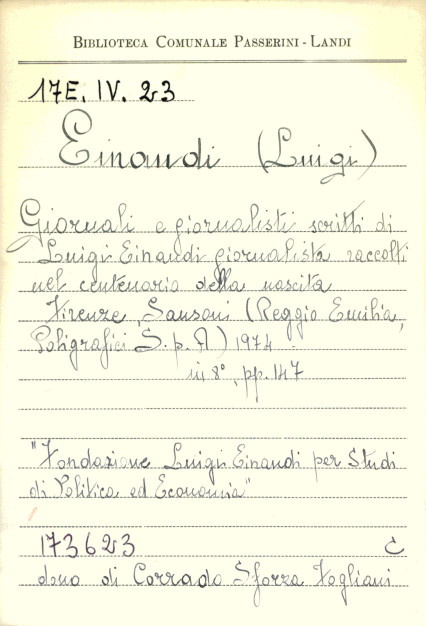 BIBLIOTECA COMUNALE PASSERINI - LANDI
17E. IV. 23
Einaudi (Luigi)
Giornali e giornalisti scritti di
Luigi Einaudi giornalista raccolti
nel centenario della nascita
Firenze, Sansoni (Reggio Emilia,
Poligrafici S.p.A.) 1974
in 8°, pp. 147
"Fondazione Luigi Einaudi per Studi
di Politica ed Economia"
173623 C
dono di Corrado Sforza Fogliani